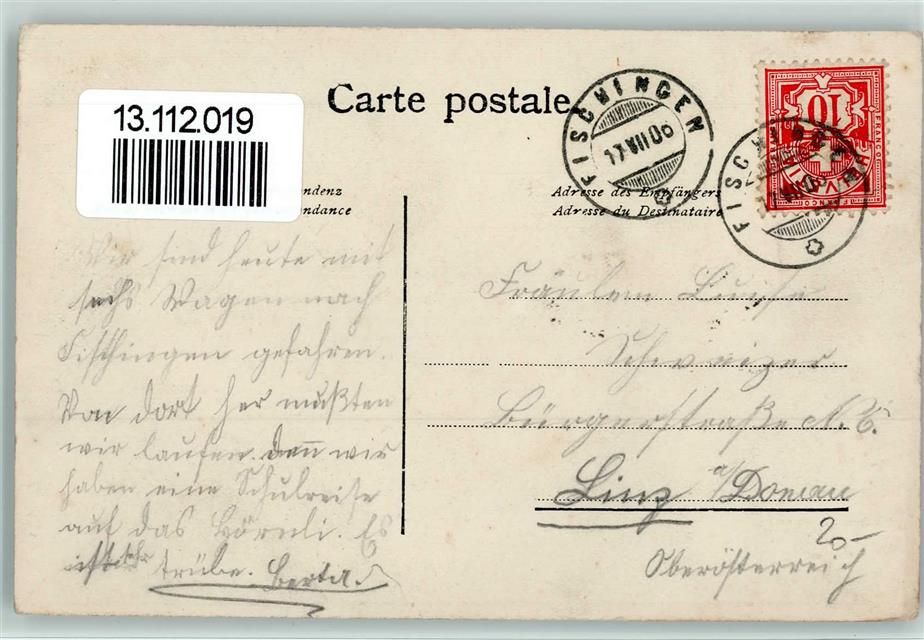 13.112.019
Carte postale
FISCHINGEN
17.VII.06
ndenz
ndance
Adresse des Empfängers
Adresse du Destinataire
FISCHINGEN
10
FRANCO
Wir sind heute mit
sechs Wagen nach
Fisthingen gefahren.
Von dort her mußten
wir laufen. denn wir
haben eine Schulreise
auf das Hörnli. Es
ist sehr trübe. Berta.
Fräulein Luise
Schweizer
Bürgerstraße N. 6.
Linz a/Donau
Oberösterreich
20-